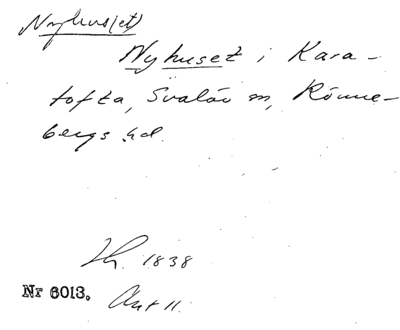 Nyhus(et)
Nyhuset i Kara-
tofta, Svalöv sn, Rönne-
bergs hd.
1838
Nr 6013.